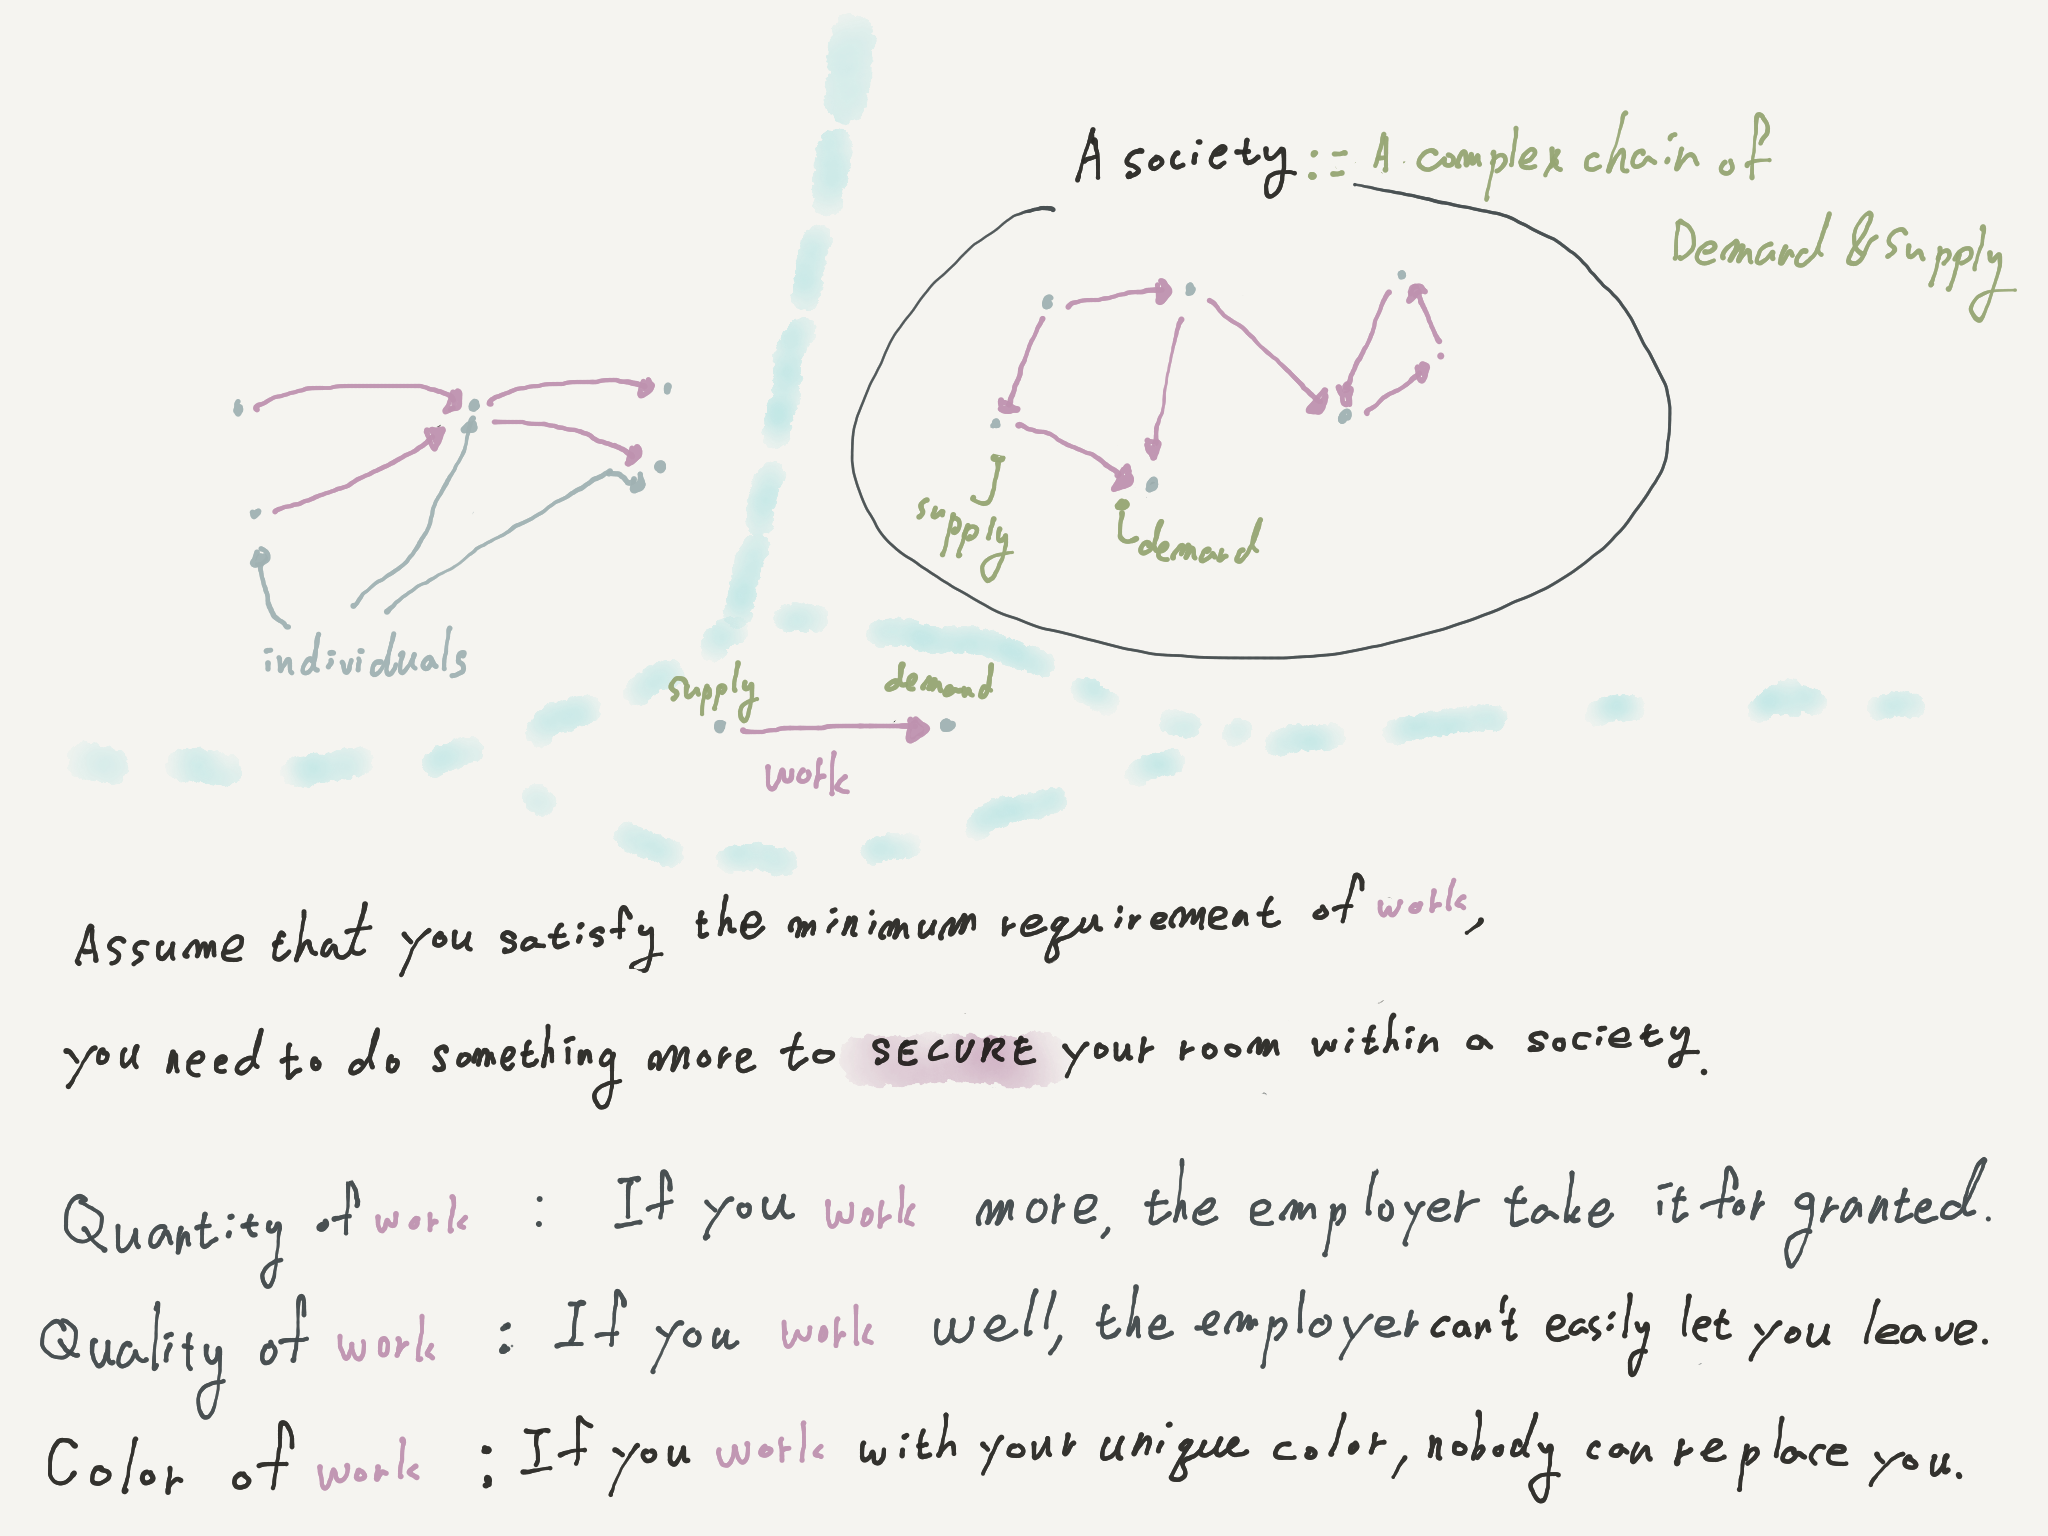 A society ::= A complex chain of
Demand & supply
supply
demand
individuals
supply
demand
work
Assume that you satisfy the minimum requirement of work,
you need to do something more to SECURE your room within a society.
Quantity of work : If you work more, the employer take it for granted.
Quality of work : If you work well, the employer can't easily let you leave.
Color of work : If you work with your unique color, nobody can replace you.